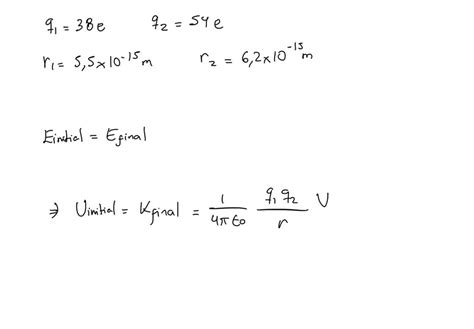 q₁ = 38e q₂ = 54e
r₁ = 5,5×10⁻¹⁵ m r₂ = 6,2×10⁻¹⁵ m
Einitial = Efinal
⇒ Uinitial = Kfinal = 1/4πε0 q₁q₂/r U